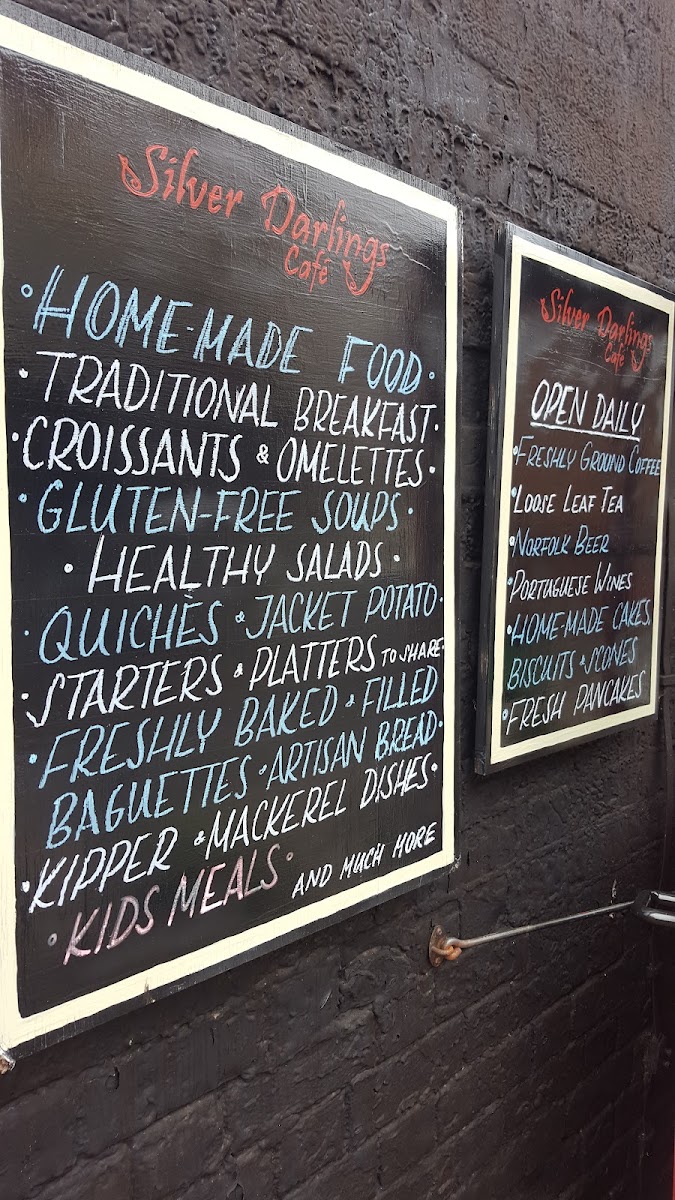 Silver Darlings
Café
• HOME-MADE FOOD •
• TRADITIONAL BREAKFAST •
• CROISSANTS & OMELETTES •
• GLUTEN-FREE SOUPS •
• HEALTHY SALADS •
• QUICHES & JACKET POTATO •
• STARTERS & PLATTERS TO SHARE •
• FRESHLY BAKED & FILLED
BAGUETTES • ARTISAN BREAD •
• KIPPER & MACKEREL DISHES •
• KIDS MEALS •
AND MUCH MORE
Silver Darlings
Café
OPEN DAILY
• FRESHLY GROUND COFFEE
• LOOSE LEAF TEA
• NORFOLK BEER
• PORTUGUESE WINES
• HOME-MADE CAKES,
BISCUITS & SCONES
• FRESH PANCAKES